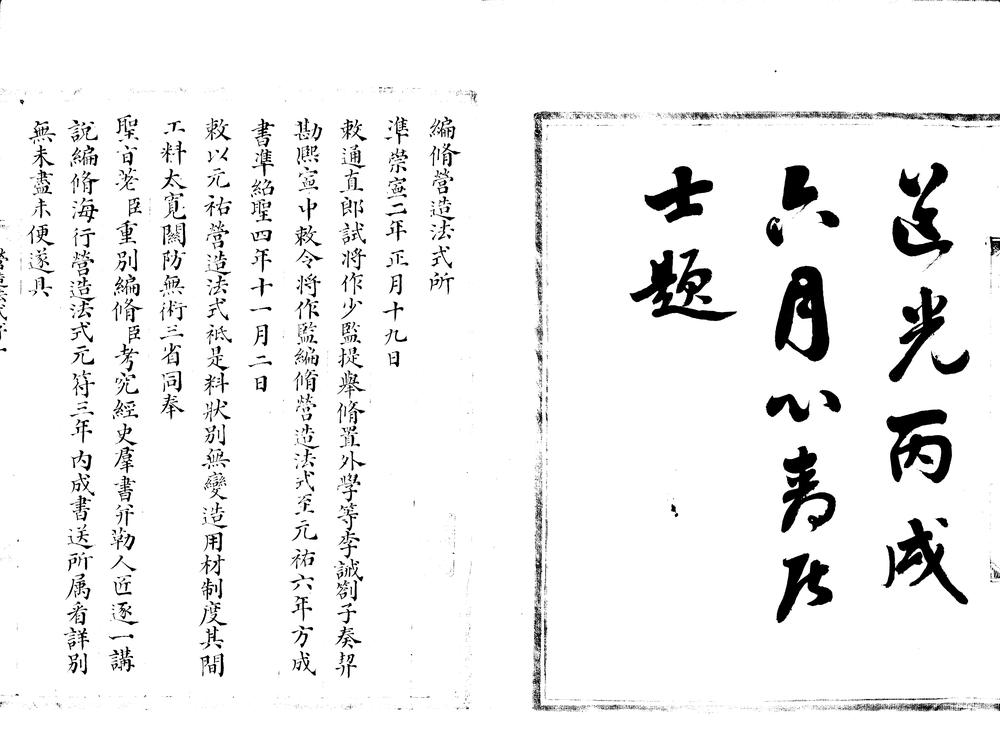 道光丙戌
六月心青居
士題
編脩營造法式所
準崇寧二年正月十九日
敕通直郎試將作少監提舉脩置外學等李誡劄子奏契
勘熙寧中敕令將作監編脩營造法式至元祐六年方成
書準紹聖四年十一月二日
敕以元祐營造法式祗是料狀別無變造用材制度其間
工料太寬關防無術三省同奉
聖旨差臣重別編脩臣考究經史羣書并勒人匠逐一講
說編脩海行營造法式元符三年內成書送所屬看詳別
無未盡未便遂具